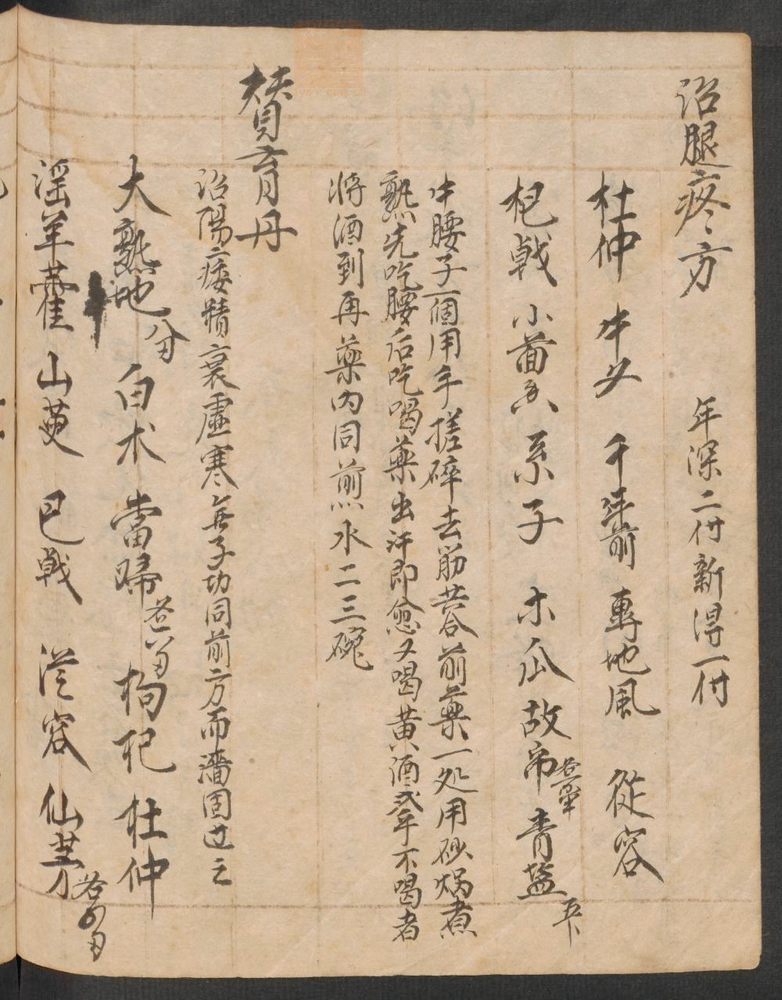 治腿疼方 年深二付新得一付
杜仲 牛夕 千年前 專地風 從容
杞戟 小茴香 系子 木瓜 故帋 各 青盐
牛腰子一個用手搓碎去筋 前藥一处用砂焗煮
熟先吃腰后吃喝藥出汗即愈又喝黄酒 不喝者
將酒到再藥内同煎水二三碗
賛育丹
治陽痿精衰虛寒無子功同前方而濇固过之
大熟地 白朮 當歸 各 枸杞 杜仲
淫羊藿 山萸 巴戟 從容 仙茅 各四